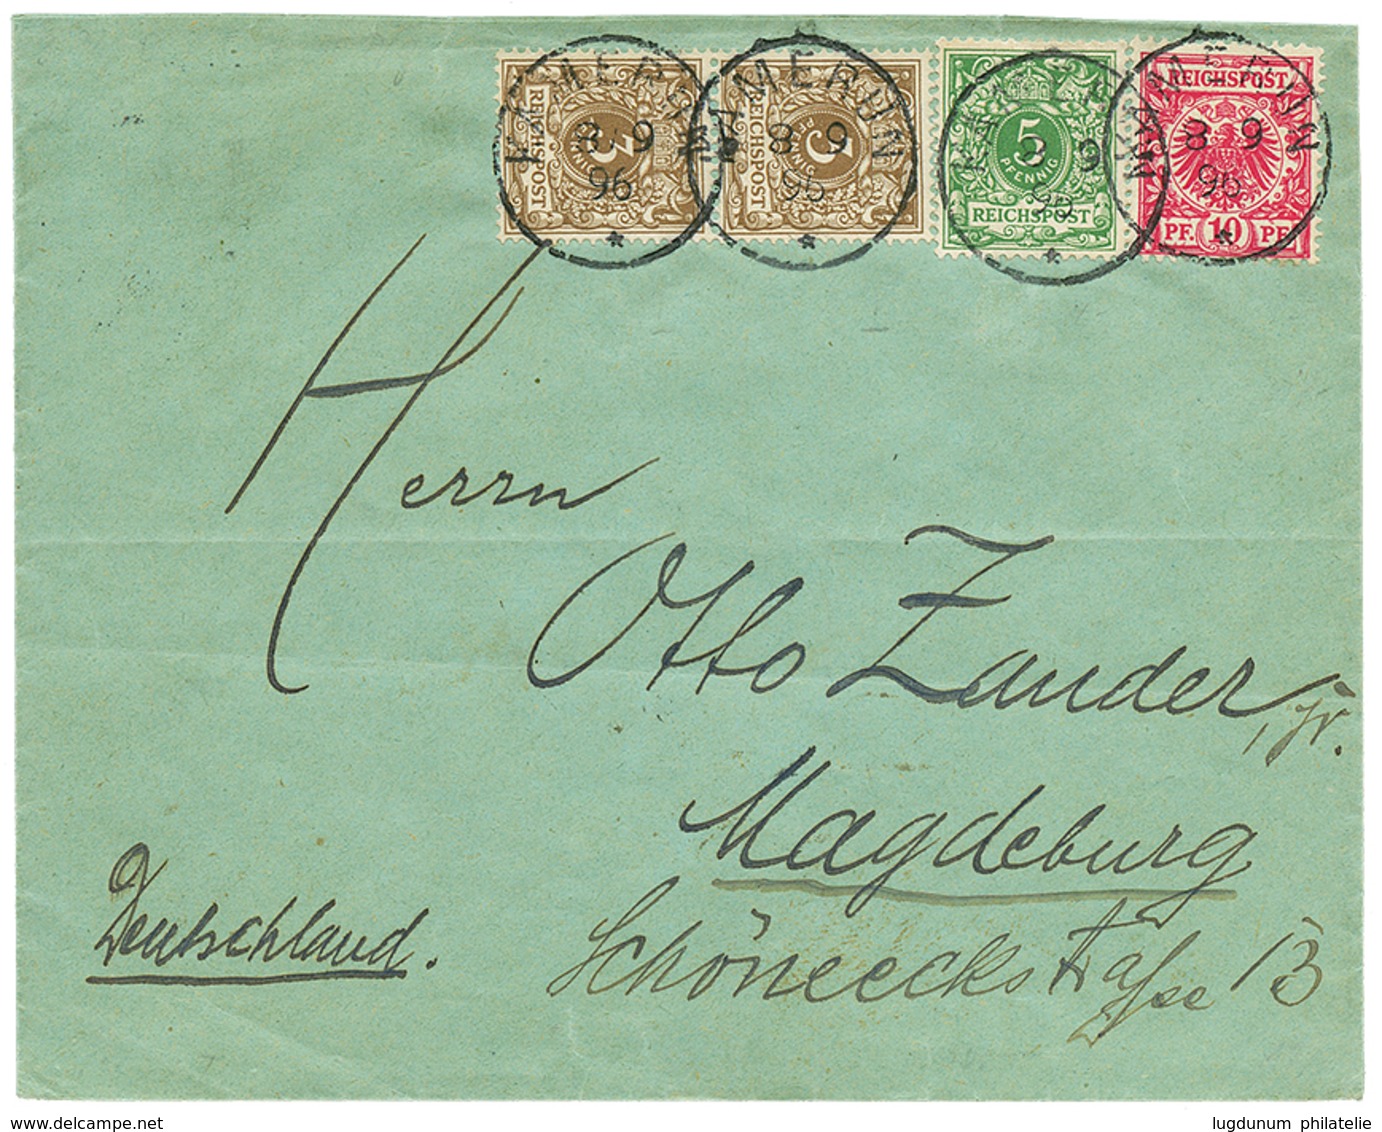 KAMERUN
8 9
96
KAMERUN
8 9
96
KAMERUN
8 9
96
KAMERUN
8 9
96
3
PFENNIG
REICHSPOST
3
PFENNIG
REICHSPOST
5
PFENNIG
REICHSPOST
REICHSPOST
PF. 10 PF.
Herrn
Otto Zander, jr.
Magdeburg
Schöneeckstraße 13
Deutschland.
delcampe.net
lugdunum philatelie